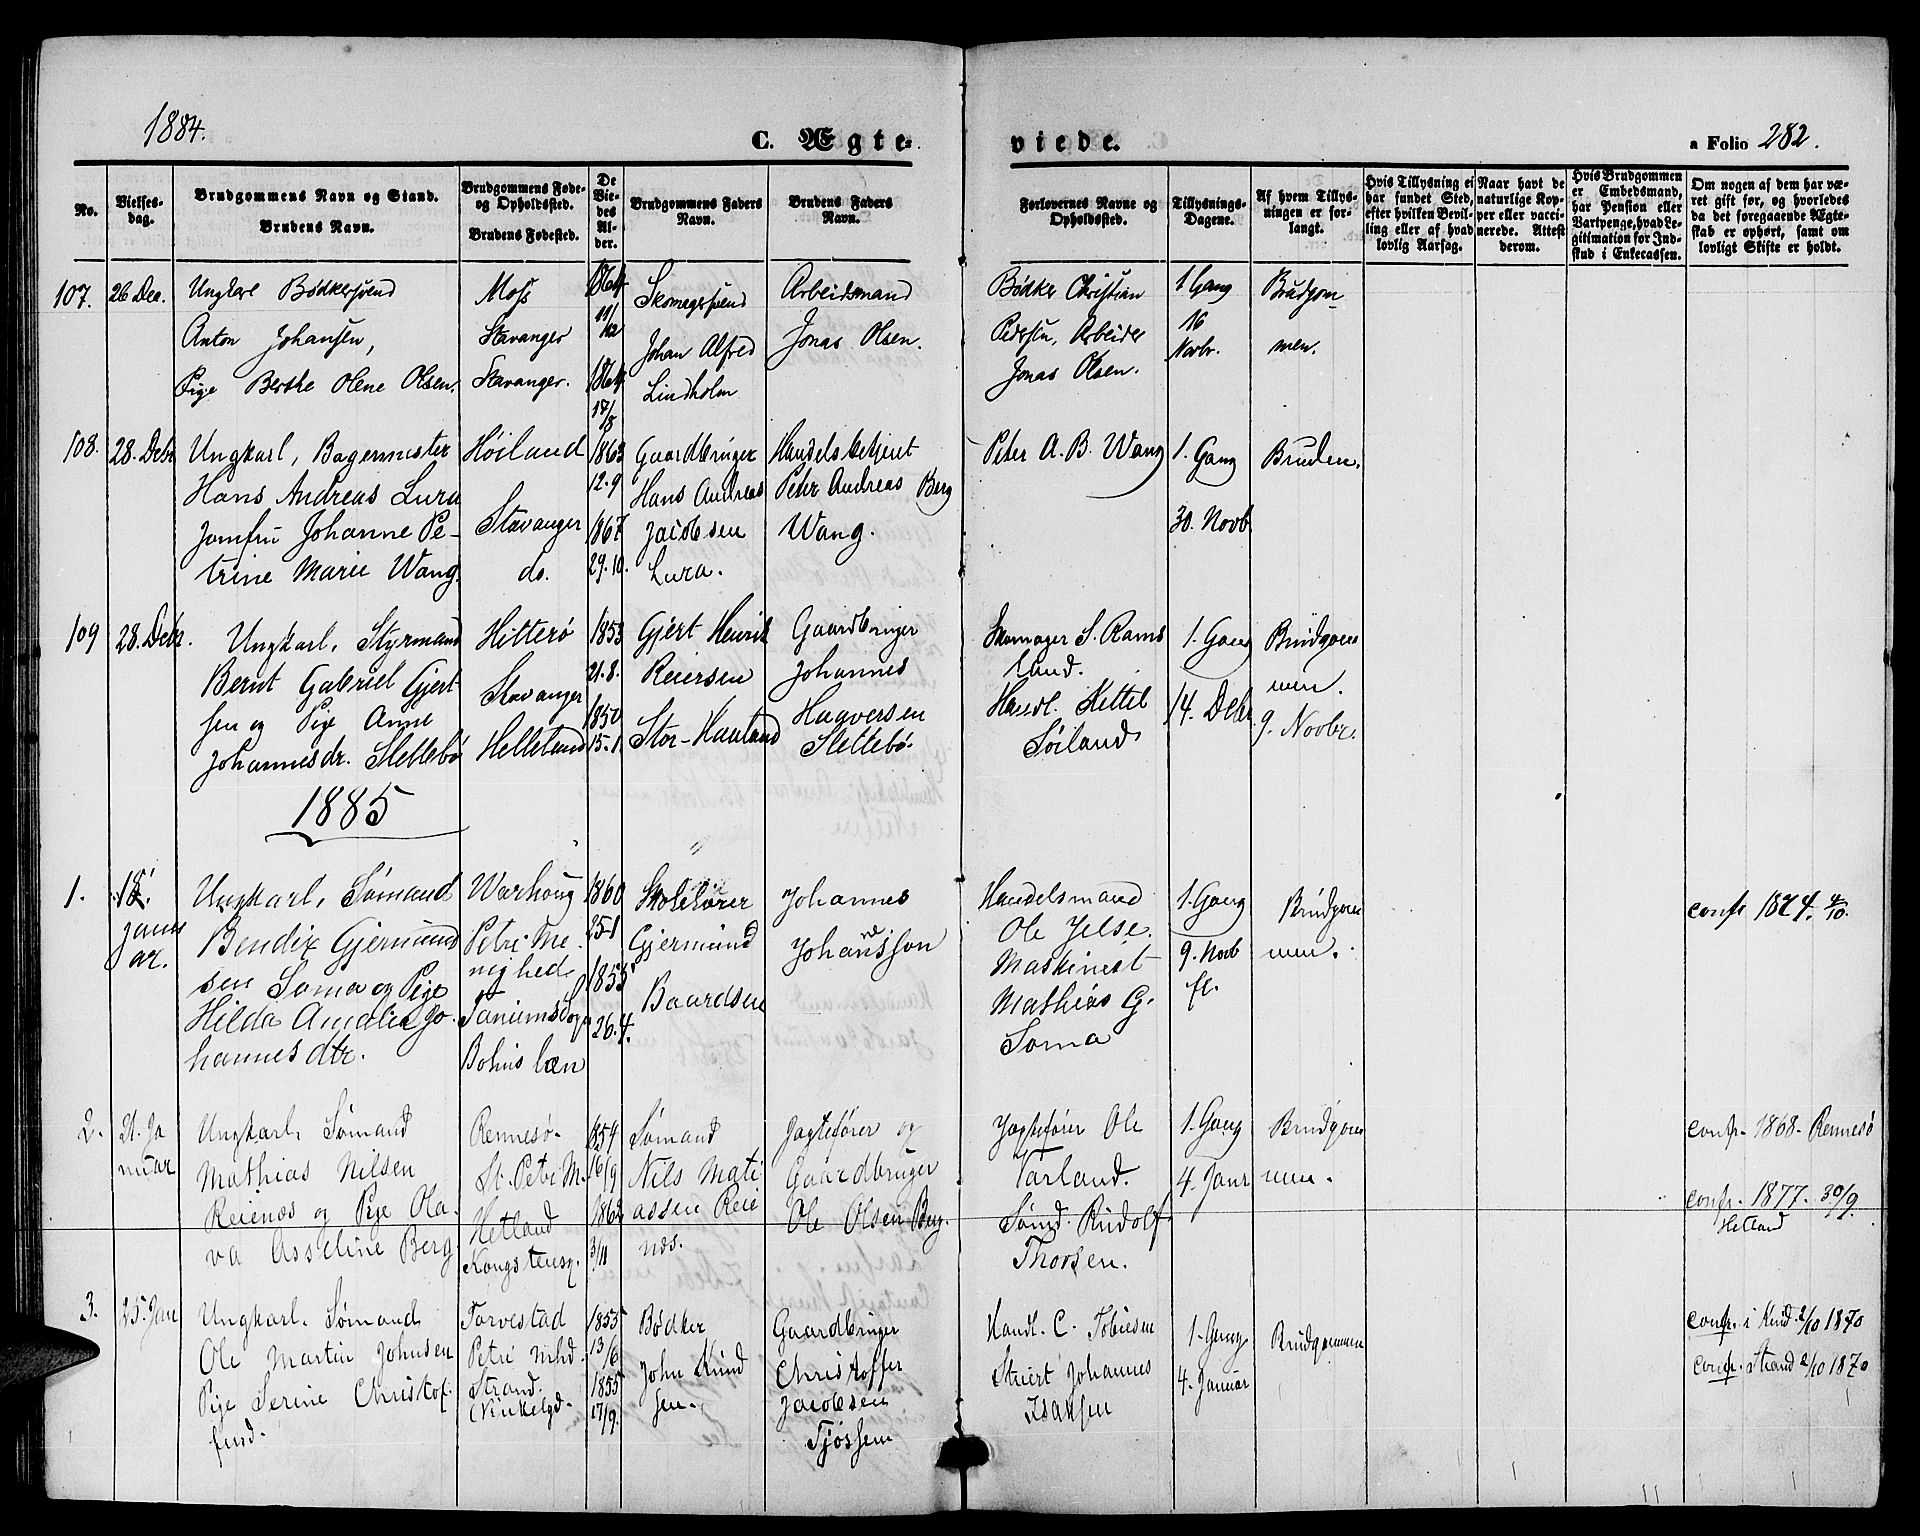 1884.
C. Ægteviede.
a Folio 282.
No.
Vielsesdag.
Brudgommens Navn og Stand.
Brudens Navn.
Brudgommens Føde- og Opholdssted.
Brudens Fødested.
De Viedes Alder.
Brudgommens Faders Navn.
Brudens Faders Navn.
Forlovernes Navne og Opholdssted.
Tillysnings-Dagene.
Af hvem Tillysningen er forlangt.
Hvis Tillysning ei har fundet Sted, efter hvilken Bevilling eller af hvad lovlig Aarsag.
Naar havt de naturlige Kopper eller vaccinerede. Attest derom.
Hvis Brudgommen er Embedsmand, har Pension eller Vartpenge, hvad Legitimation for Indskud i Enkecassen.
Om nogen af dem har været gift før, og hvorledes da det foregaaende Ægteskab er ophørt, samt om lovligt Skifte er holdt.
107.
26 Dec.
Ungkarl Bødkersvend
Anton Johansen,
Pige Berthe Olene Olsen.
Moss
Stavanger
Stavanger.
1864
11/12
1864
Skomagersvend
Johan Alfred
Lindholm
Arbeidsmand
Jonas Olsen.
Bødker Christian
Pedersen, Arbeider
Jonas Olsen.
1 Gang
16
Novbr.
Brudgom
men.
108.
28. Debr
Ungkarl, Bagermester
Hans Andreas Lura
Jomfru Johanne Pe-
trine Marie Wang.
Høiland
Stavanger
do.
1863
12.9
1867
29.10.
Gaardbruger
Hans Andreas
Jacobsen
Lura.
Handelsbetjent
Peter Andreas Berg
Wang.
Peter A. B. Wang
1. Gang
30. Novb
Bruden.
109
28. Debr.
Ungkarl, Styrmand
Bernt Gabriel Gjert
sen og Pige Anne
Johannesdr. Slettebø
Hitterø
Stavanger
Helleland
1853
21.8.
1850
15.1
Gjert Henrik
Reiersen
Stor-Hauland
Gaardbruger
Johannes
Haaversen
Slettebø.
Skomager S. Rams
land.
Handl. Kittel
Søiland
1. Gang
14. Debr
Brudgom
men.
9. Novbr.
1885
1.
Janu
ar.
Ungkarl, Sømand
Bendix Gjermund
sen Soma og Pige
Hilda Amalia Jo-
hannesdtr.
Warhoug
Petri Me-
nighed
Tanums Sogn
Bohus læn
1860
25-1
1855
26.4.
Skolelærer
Gjermund
Baardsen
Johannes
Johansson
Handelsmand
Ole Jelse.
Maskinist
Mathias G.
Soma
1. Gang
9. Novb
fl.
Brudgom
men.
confr 1874. 4/10.
2.
21. Ja
nuar
Ungkarl, Sømand
Mathias Nilsen
Reienæs og Pige Ola-
va Asseline Berg.
Rennesø.
St. Petri M.
Hetland
Kongstensg.
1854
16/9
1862
3/11
Sømand
Nils Mati
assen Reie
næs.
Jagtefører og
Gaardbruger
Ole Olsen Berg.
Jagtefører Ole
Varland.
Sømd. Rudolf
Thorsen.
1. Gang
4. Janr
Brudgom
men.
confr. 1868. Rennesø
confr. 1877. 30/9.
Hetland
3.
25. Jan
Ungkarl. Sømand
Ole Martin Johnsen
Pige Serine Christof-
fersd.
Torvestad
Petri Mhd.
Strand.
1855
13/6
1855
17/9.
Bødker
John Knud
sen.
Gaardbruger
Christoffer
Jacobsen
Tjøssem
Handl. C. Tobiesen
Stuert Johannes
Isaksen
1. Gang
4. Januar
Brudgommen
confr. i Kind. 2/10 1870
confr. Strand 2/10 1870